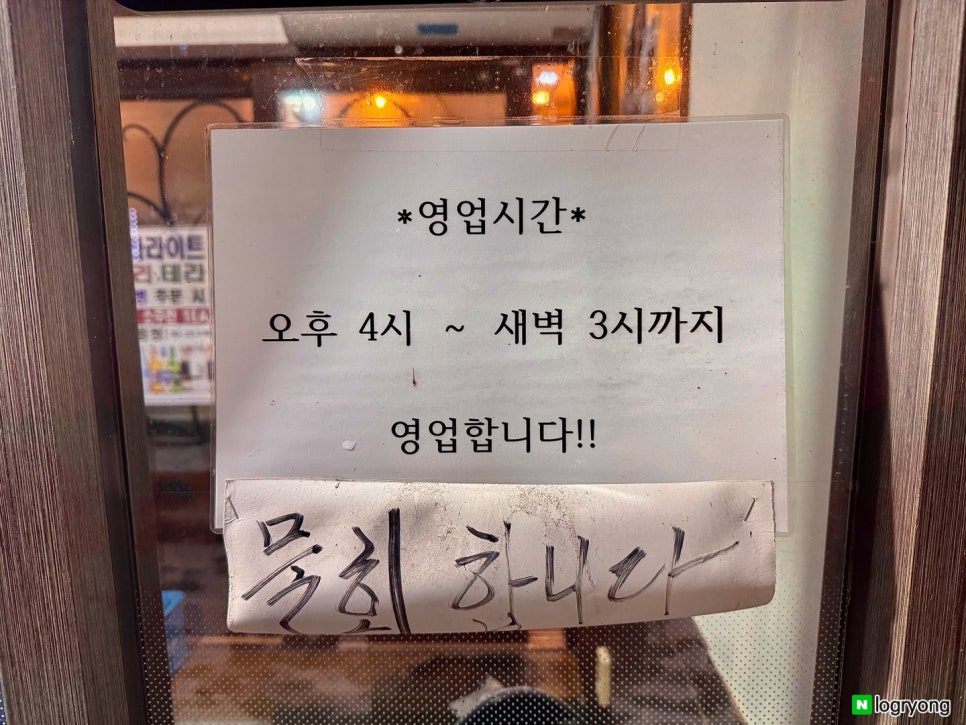 *영업시간*
오후 4시 ~ 새벽 3시까지
영업합니다!!
물회 합니다
라이트
테라
주문 시
N logryong